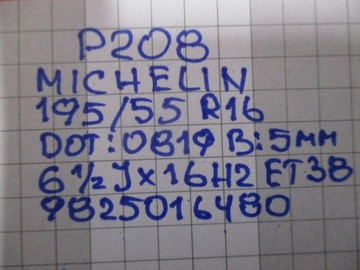 P208
MICHELIN
195/55 R16
DOT: 0819 B: 5MM
6 1/2 J x 16H2 ET38
9825016480